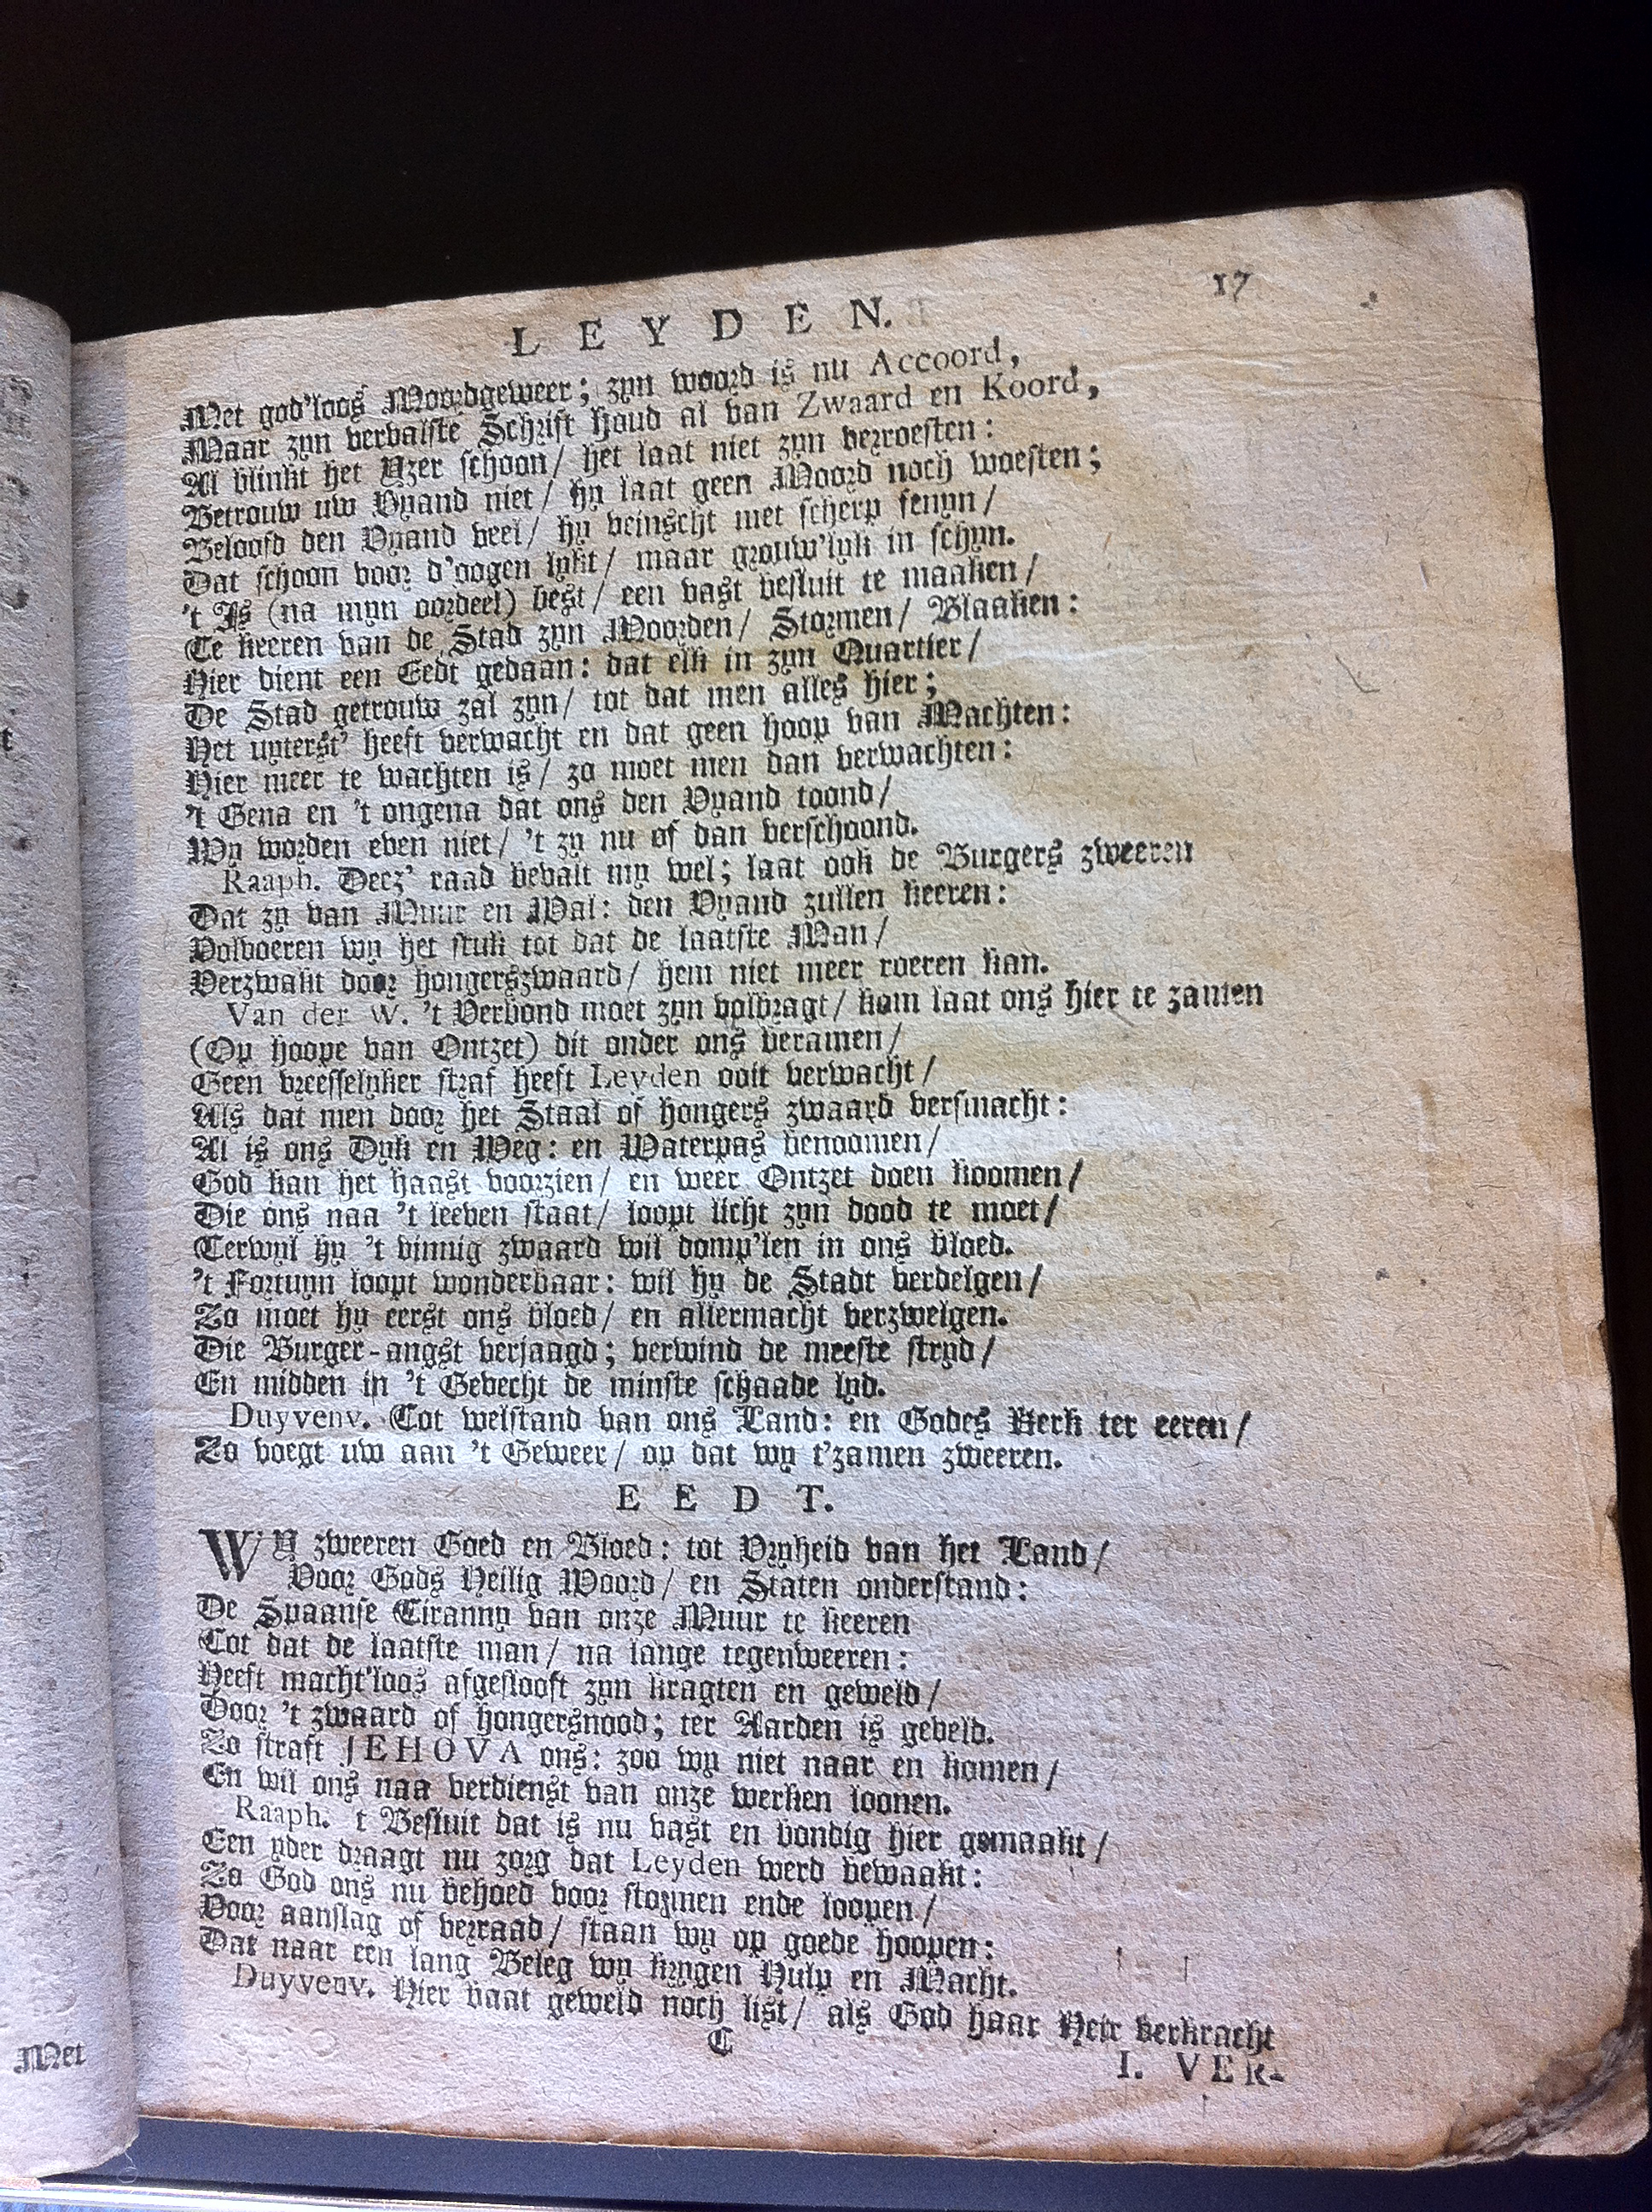 LEYDEN. 17
Met god'loos Moordgeweer; zyn woord is nu Accoord,
Maar zyn vervalste Schrift houd al van Zwaard en Koord,
Al blinkt het Yzer schoon/ het laat niet zyn verroesten:
Betrouw uw Vyand niet/ hy laat geen Moord noch woesten;
Beloofd den Vyand veel/ hy veinscht met scherp fenyn/
Dat schoon voor d'oogen lykt/ maar grouw'lyk in schyn.
't Is (na myn oordeel) best/ een vast besluit te maaken/
Te keeren van de Stad zyn Moorden/ Stormen/ Blaaken:
Hier dient een Eedt gedaan: dat elk in zyn Quartier/
De Stad getrouw zal zyn/ tot dat men alles hier;
Het uyterst' heeft verwacht en dat geen hoop van Machten:
Hier meer te wachten is/ zo moet men dan verwachten:
't Gena en 't ongena dat ons den Vyand toond/
Wy worden even niet/ 't zy nu of dan verschoond.
Raaph. Deez' raad bevalt my wel; laat ook de Burgers zweeren
Dat zy van Muur en Wal: den Vyand zullen keeren:
Volvoeren wy het stuk tot dat de laatste Man/
Verzwakt door hongerszwaard/ hem niet meer roeren kan.
Van der W. 't Verbond moet zyn volbragt/ kom laat ons hier te zamen
(Op hoope van Ontzet) dit onder ons beramen/
Geen vreesselyker straf heeft Leyden ooit verwacht/
Als dat men door het Staal of hongers zwaard versmacht:
Al is ons Dyk en Weg: en Waterpas benoomen/
God kan het haast voorzien/ en weer Ontzet doen koomen/
Die ons naa 't leeven staat/ loopt licht zyn dood te moet/
Terwyl hy 't vinnig zwaard wil domp'len in ons bloed.
't Fortuyn loopt wonderbaar: wil hy de Stadt verdelgen/
Zo moet hy eerst ons bloed/ en allermacht verzwelgen.
Die Burger-angst verjaagd; verwind de meeste stryd/
En midden in 't Gevecht de minste schaade lyd.
Duyvenv. Tot welstand van ons Land: en Godes Kerk ter eeren/
Zo voegt uw aan 't Geweer/ op dat wy t'zamen zweeren.
EEDT.
WY zweeren Goed en Bloed: tot Vryheid van het Land/
Voor Gods Heilig Woord/ en Staten onderstand:
De Spaanse Tiranny van onze Muur te keeren
Tot dat de laatste man/ na lange tegenweeren:
Heeft macht'loos afgeslooft zyn kragten en geweld/
Door 't zwaard of hongersnood; ter Aarden is geveld.
Zo straft JEHOVA ons: zoo wy niet naar en komen/
En wil ons naa verdienst van onze werken loonen.
Raaph. 't Besluit dat is nu vast en bondig hier gemaakt/
Een yder draagt nu zorg dat Leyden werd bewaakt:
Zo God ons nu behoed voor stormen ende loopen/
Voor aanslag of verraad/ staan wy op goede hoopen:
Dat naar een lang Beleg wy krygen Hulp en Macht.
Duyvenv. Hier baat geweld noch list/ als God haar Heir verkracht
C
I. VER-
Met